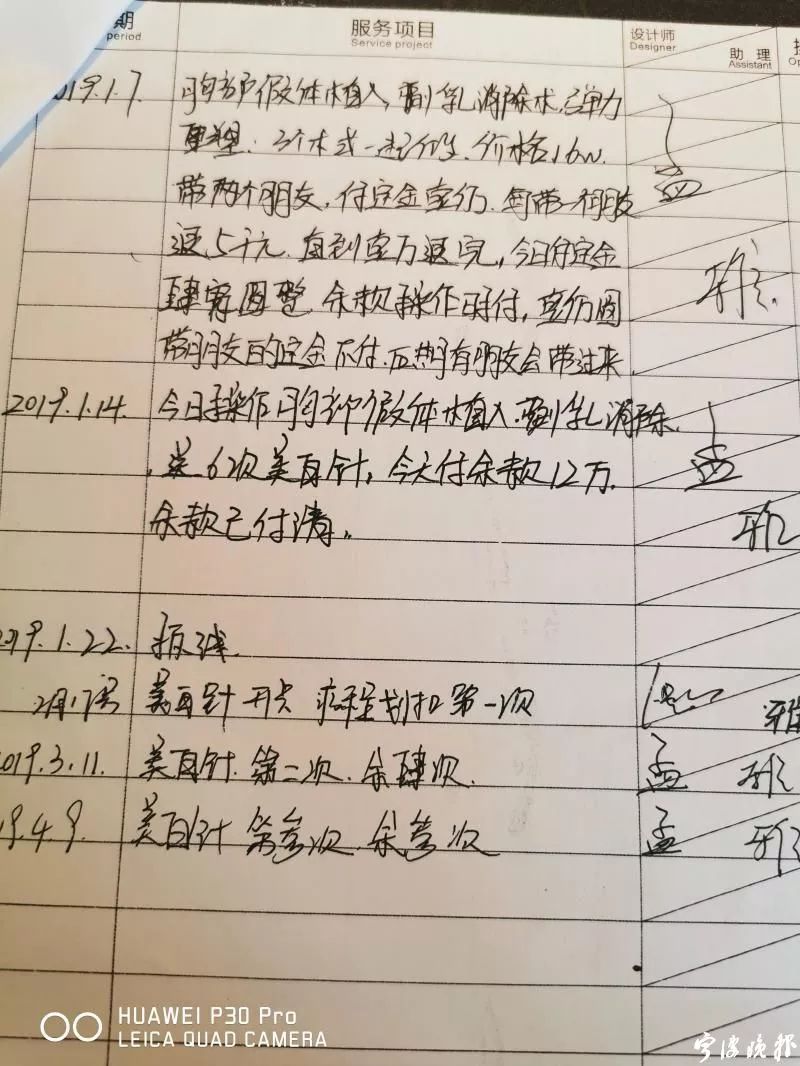 期 服务项目 设计师 助理
period Service project Designer Assistant Op
2019.1.7. 胸部假体植入,副乳消除术,弹力
重塑.3个术式一起做.价格16w.
带两个朋友,付定金 每带一个朋友
返5千元.直到壹万返完,今日付定金
肆 圆整 余款手术时付,
带朋友的定金不付.后期有朋友会带过来
2019.1.14. 今日手术 胸部假体植入.副乳消除.
送6次美白针,今天付余款12万.
余款已付清。
2019.1.22. 拆线.
2月17号 美白针开卡 疗程划扣第一次
2019.3.11. 美白针.第二次.余肆次. 孟
19.4.9. 美白针 第叁次.余叁次 孟
HUAWEI P30 Pro
LEICA QUAD CAMERA
宁波晚报